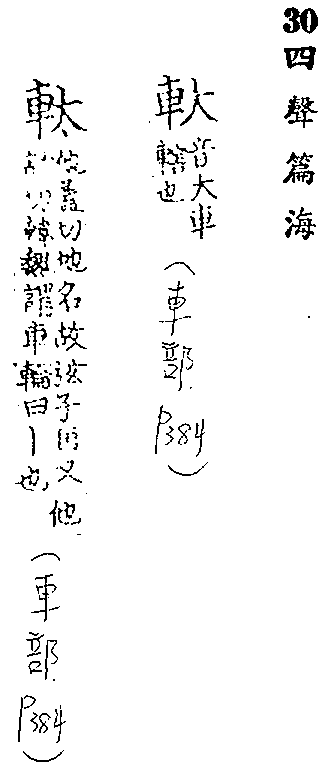 30四聲篇海
軑
音大車
轄也
(車部P384)
軚
蓋切地名故弦子所又他
切韓魏謂車輪曰丨也
(車部P384)